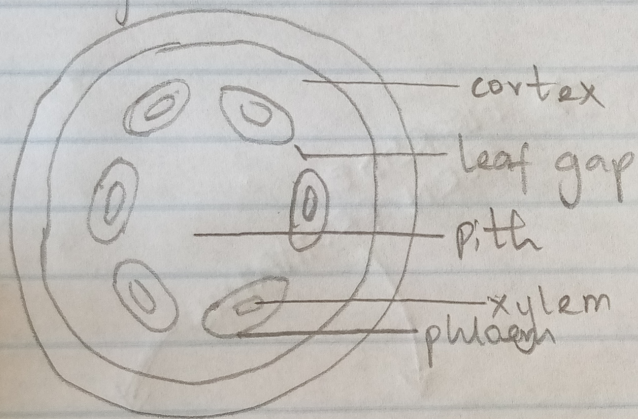 cortex
leaf gap
pith
xylem
phloem